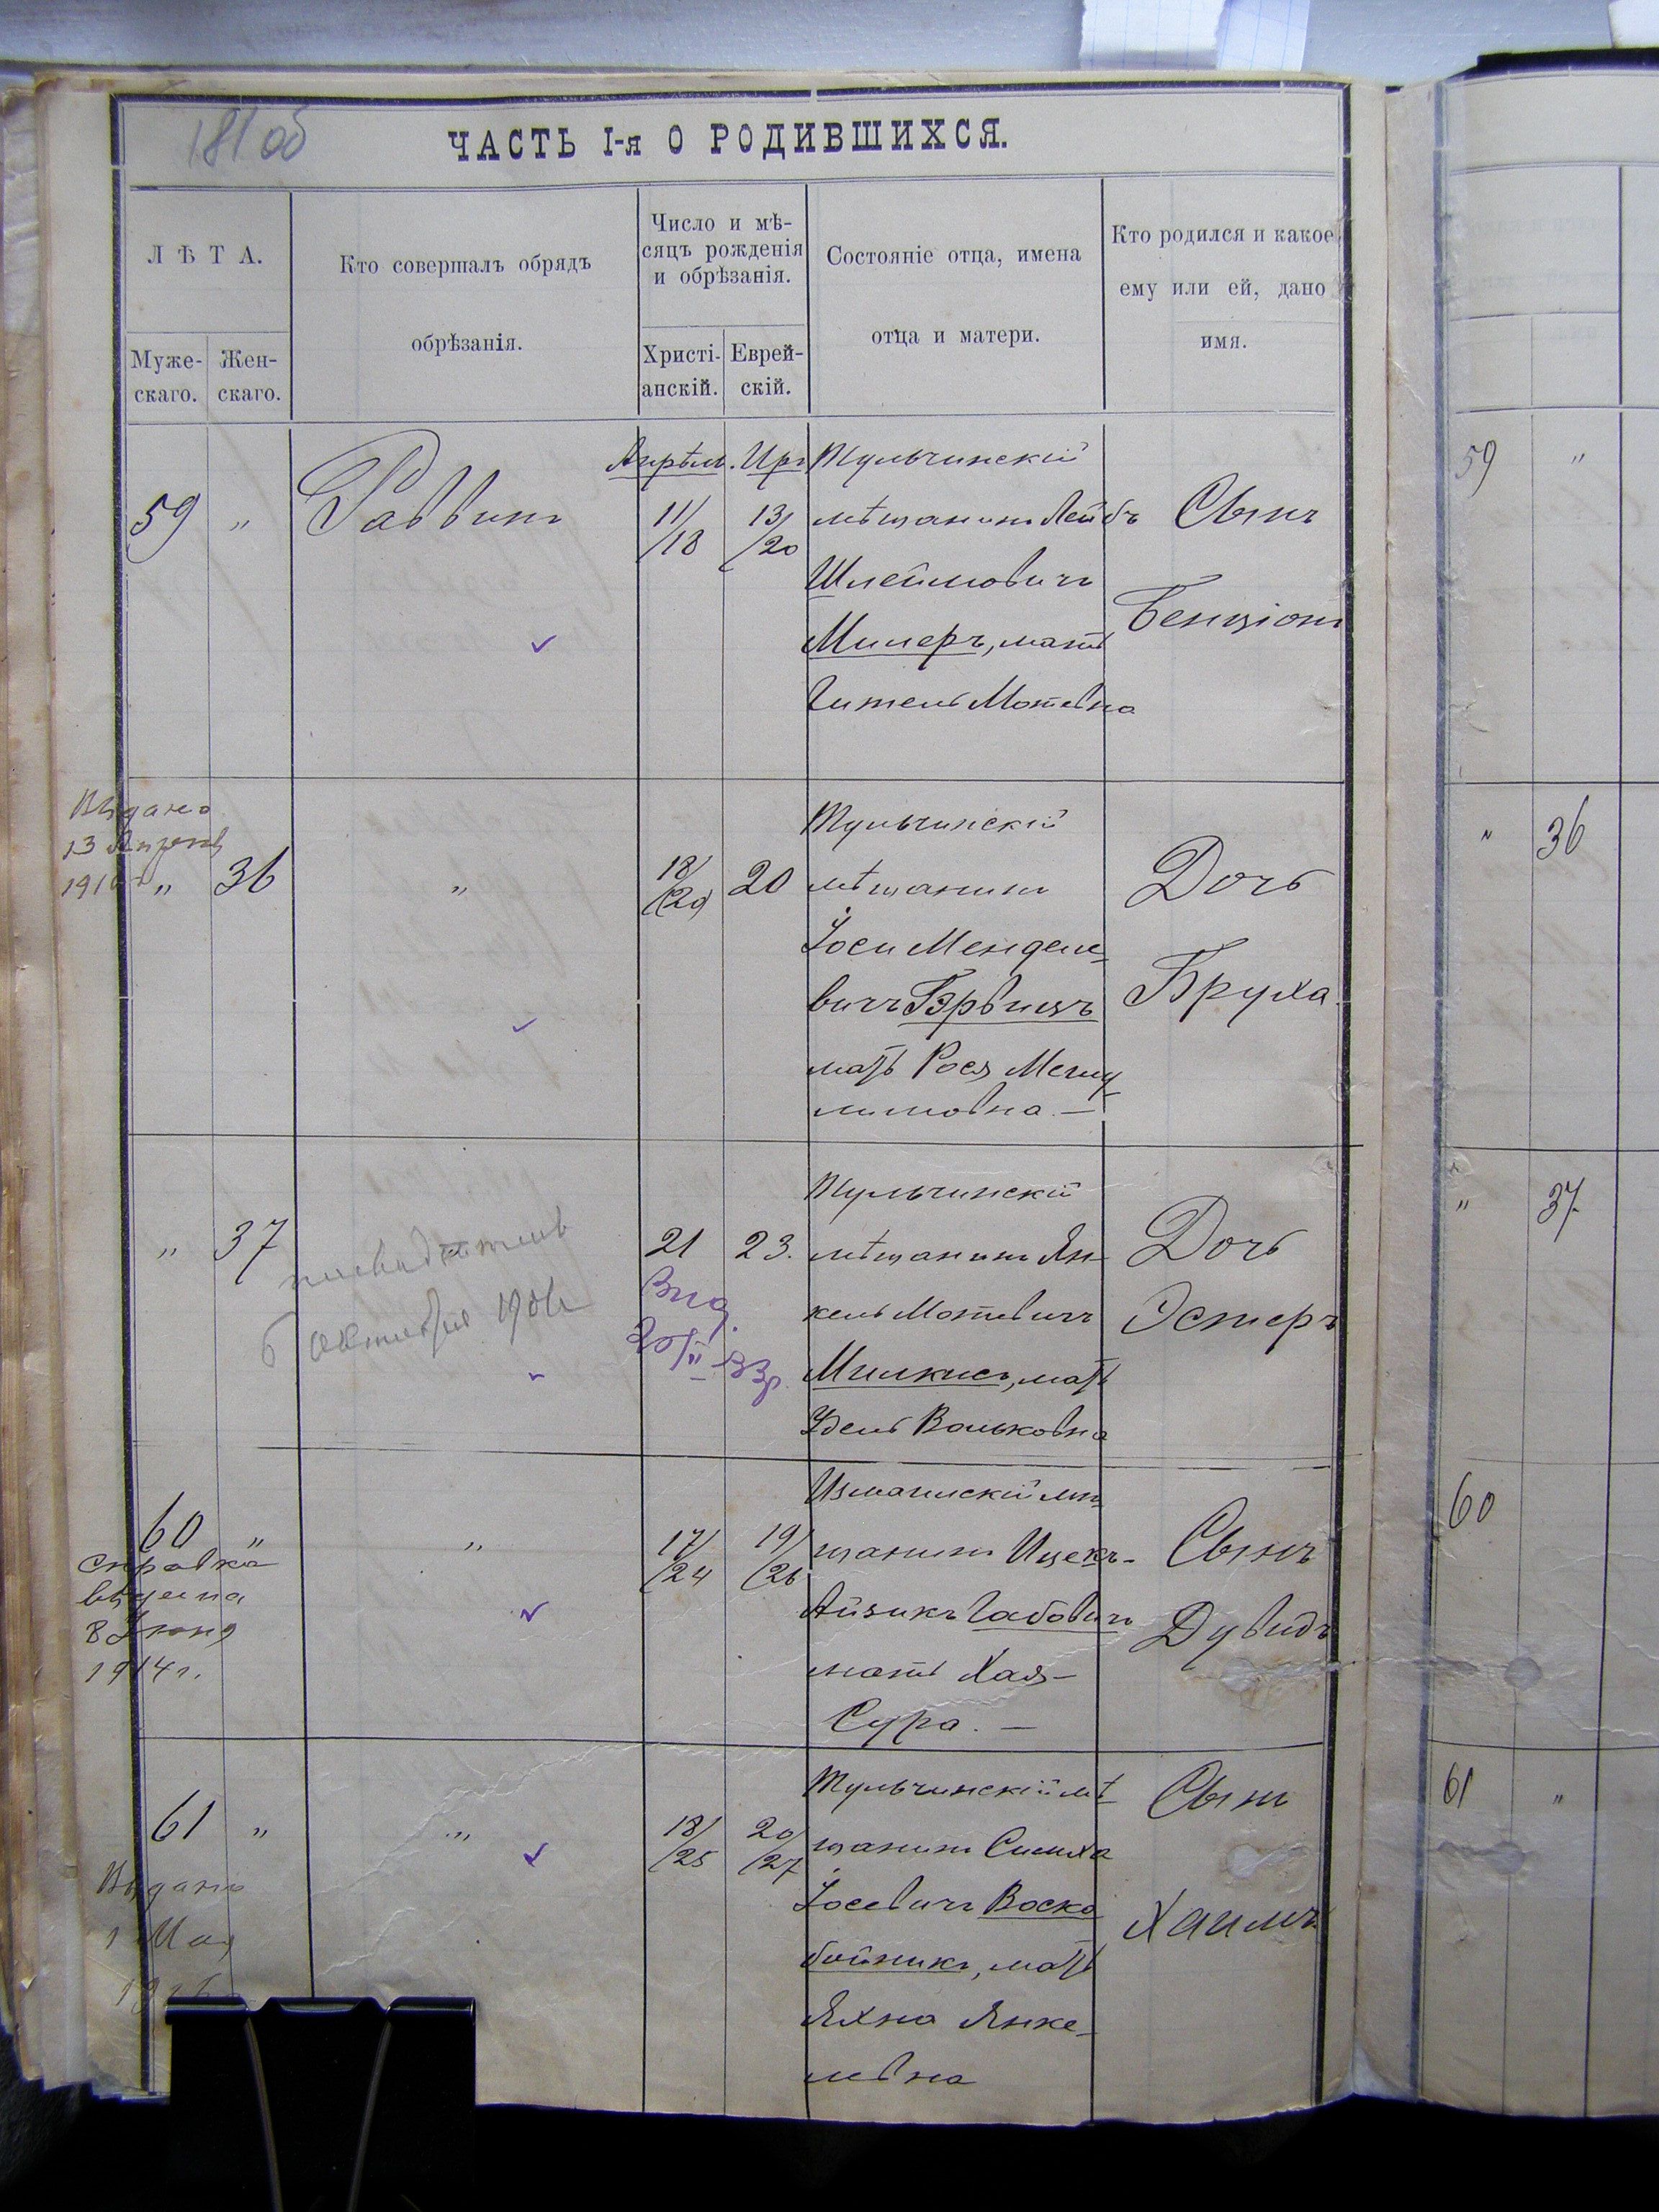 181 об
ЧАСТЬ I-я О РОДИВШИХСЯ.
ЛѢТА.
Муже-
скаго.
Жен-
скаго.
Кто совершалъ обрядъ
обрѣзанія.
Число и мѣ-
сяцъ рожденія
и обрѣзанія.
Христі-
анскій.
Еврей-
скій.
Состояніе отца, имена
отца и матери.
Кто родился и какое
ему или ей, дано
имя.
59 " Раввинъ
Апрѣль. Иръ
11/18 13/20
Тульчинскій
мѣщанинъ Лейбъ
Шлеймовичъ
Милеръ, мать
Гитель Мотевна
Сынъ
Бенціонъ
Выдано
13 Апрѣля
" 36 "
18/(20) 20
Тульчинскій
мѣщанинъ
Іосп Менделе-
вичъ Гэрвицъ
мать Рося
Дочь
Бруха.
" 37
6 октября
21 23.
Выд.
20/II 33г.
Тульчинскій
мѣщанинъ Ян-
кель Мотевичъ
Милкисъ, мать
Удель Вольковна
Дочь
Эстеръ
60 " "
справка
выдана
8 Іюня
1914 г.
17/24 19/26
Измаилскій мѣ-
щанинъ Ицекъ-
Айзикъ Габовичъ
мать Хая-
Сура. —
Сынъ
Дувидъ
61 " "
Выдано
1 Мая
18/25 20/27
Тульчинскій мѣ-
щанинъ Симха
Іосевичъ Воско-
бойникъ, мать
Яхна Янке-
левна
Сынъ
Хаимъ
59 "
" 36
" 37
60
61 "